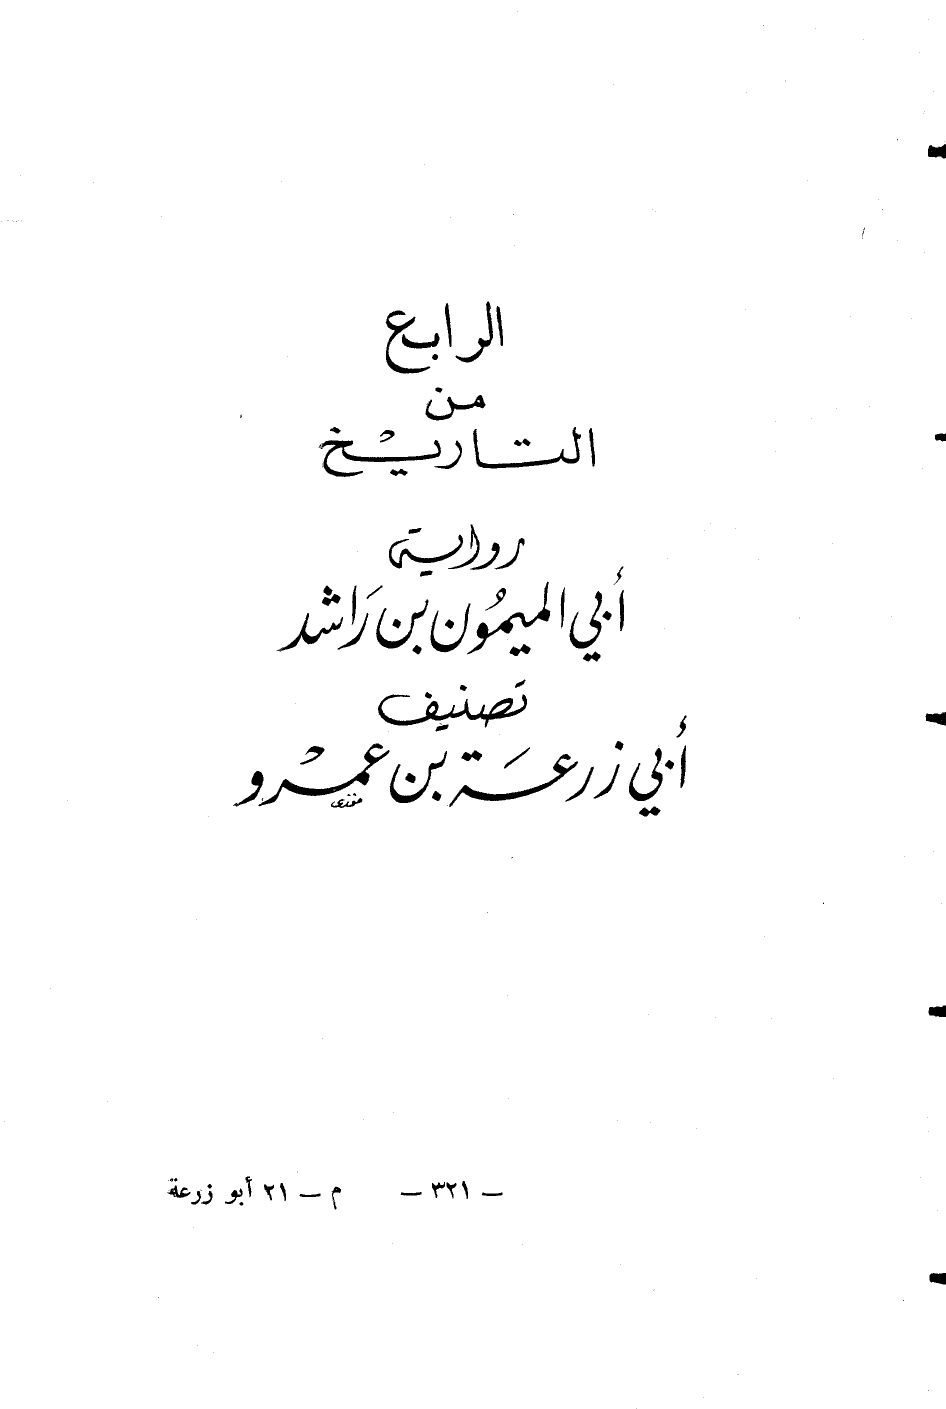 الرابع
من
التاريخ
رواية
أبي الميمُون بن رَاشد
تصنيف
أبي زرعَة بن عمرو
— ٣٢١ — م — ٢١ أبو زرعة